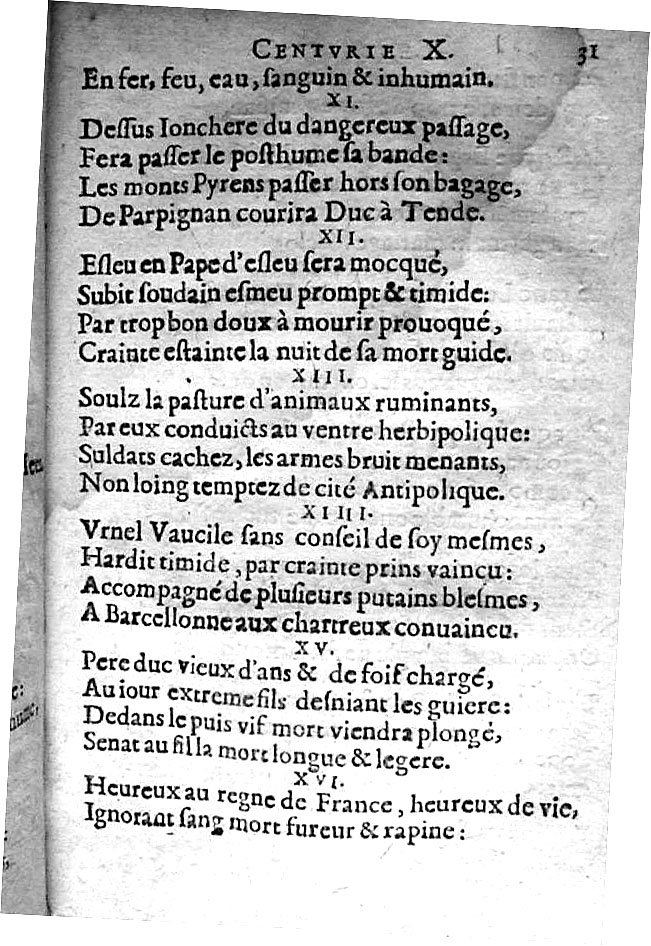 CENTVRIE X. 31
En fer, feu, eau, ſanguin & inhumain.
XI.
Deſſus Ionchere du dangereux paſſage,
Fera paſſer le poſthume ſa bande:
Les monts Pyrens paſſer hors ſon bagage,
De Parpignan courira Duc à Tende.
XII.
Eſleu en Pape d'eſleu ſera mocqué,
Subit ſoudain eſmeu prompt & timide:
Par trop bon doux à mourir prouoqué,
Crainte eſtainte la nuit de ſa mort guide.
XIII.
Soulz la paſture d'animaux ruminants,
Par eux conduicts au ventre herbipolique:
Suldats cachez, les armes bruit menants,
Non loing temptez de cité Antipolique.
XIIII.
Vrnel Vaucile ſans conſeil de ſoy meſmes,
Hardit timide, par crainte prins vaincu:
Accompagné de pluſieurs putains bleſmes,
A Barcellonne aux chartreux conuaincu.
XV.
Pere duc vieux d'ans & de ſoif chargé,
Au iour extreme fils deſniant les guiere:
Dedans le puis vif mort viendra plongé,
Senat au fil la mort longue & legere.
XVI.
Heureux au regne de France, heureux de vie,
Ignorant ſang mort fureur & rapine: